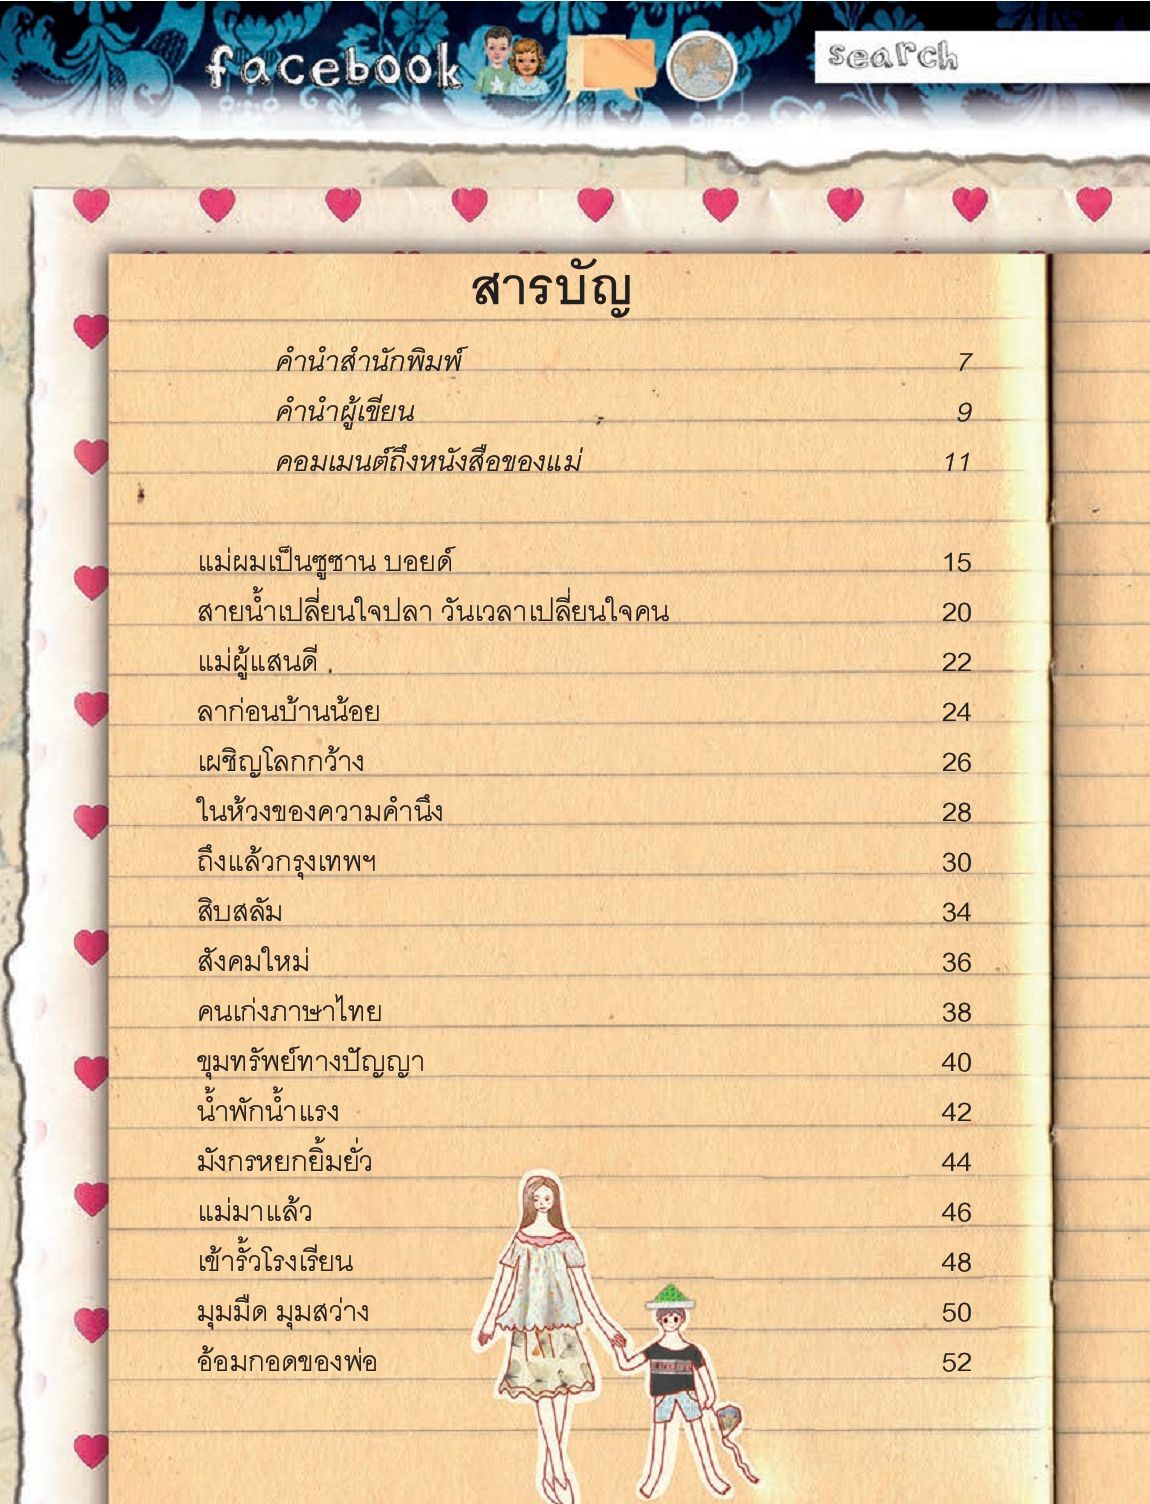 facebook
search
สารบัญ
คำนำสำนักพิมพ์ 7
คำนำผู้เขียน 9
คอมเมนต์ถึงหนังสือของแม่ 11
แม่ผมเป็นซูซาน บอยด์ 15
สายน้ำเปลี่ยนใจปลา วันเวลาเปลี่ยนใจคน 20
แม่ผู้แสนดี 22
ลาก่อนบ้านน้อย 24
เผชิญโลกกว้าง 26
ในห้วงของความคำนึง 28
ถึงแล้วกรุงเทพฯ 30
สิบสลัม 34
สังคมใหม่ 36
คนเก่งภาษาไทย 38
ขุมทรัพย์ทางปัญญา 40
น้ำพักน้ำแรง 42
มังกรหยกยิ้มยั่ว 44
แม่มาแล้ว 46
เข้ารั้วโรงเรียน 48
มุมมืด มุมสว่าง 50
อ้อมกอดของพ่อ 52